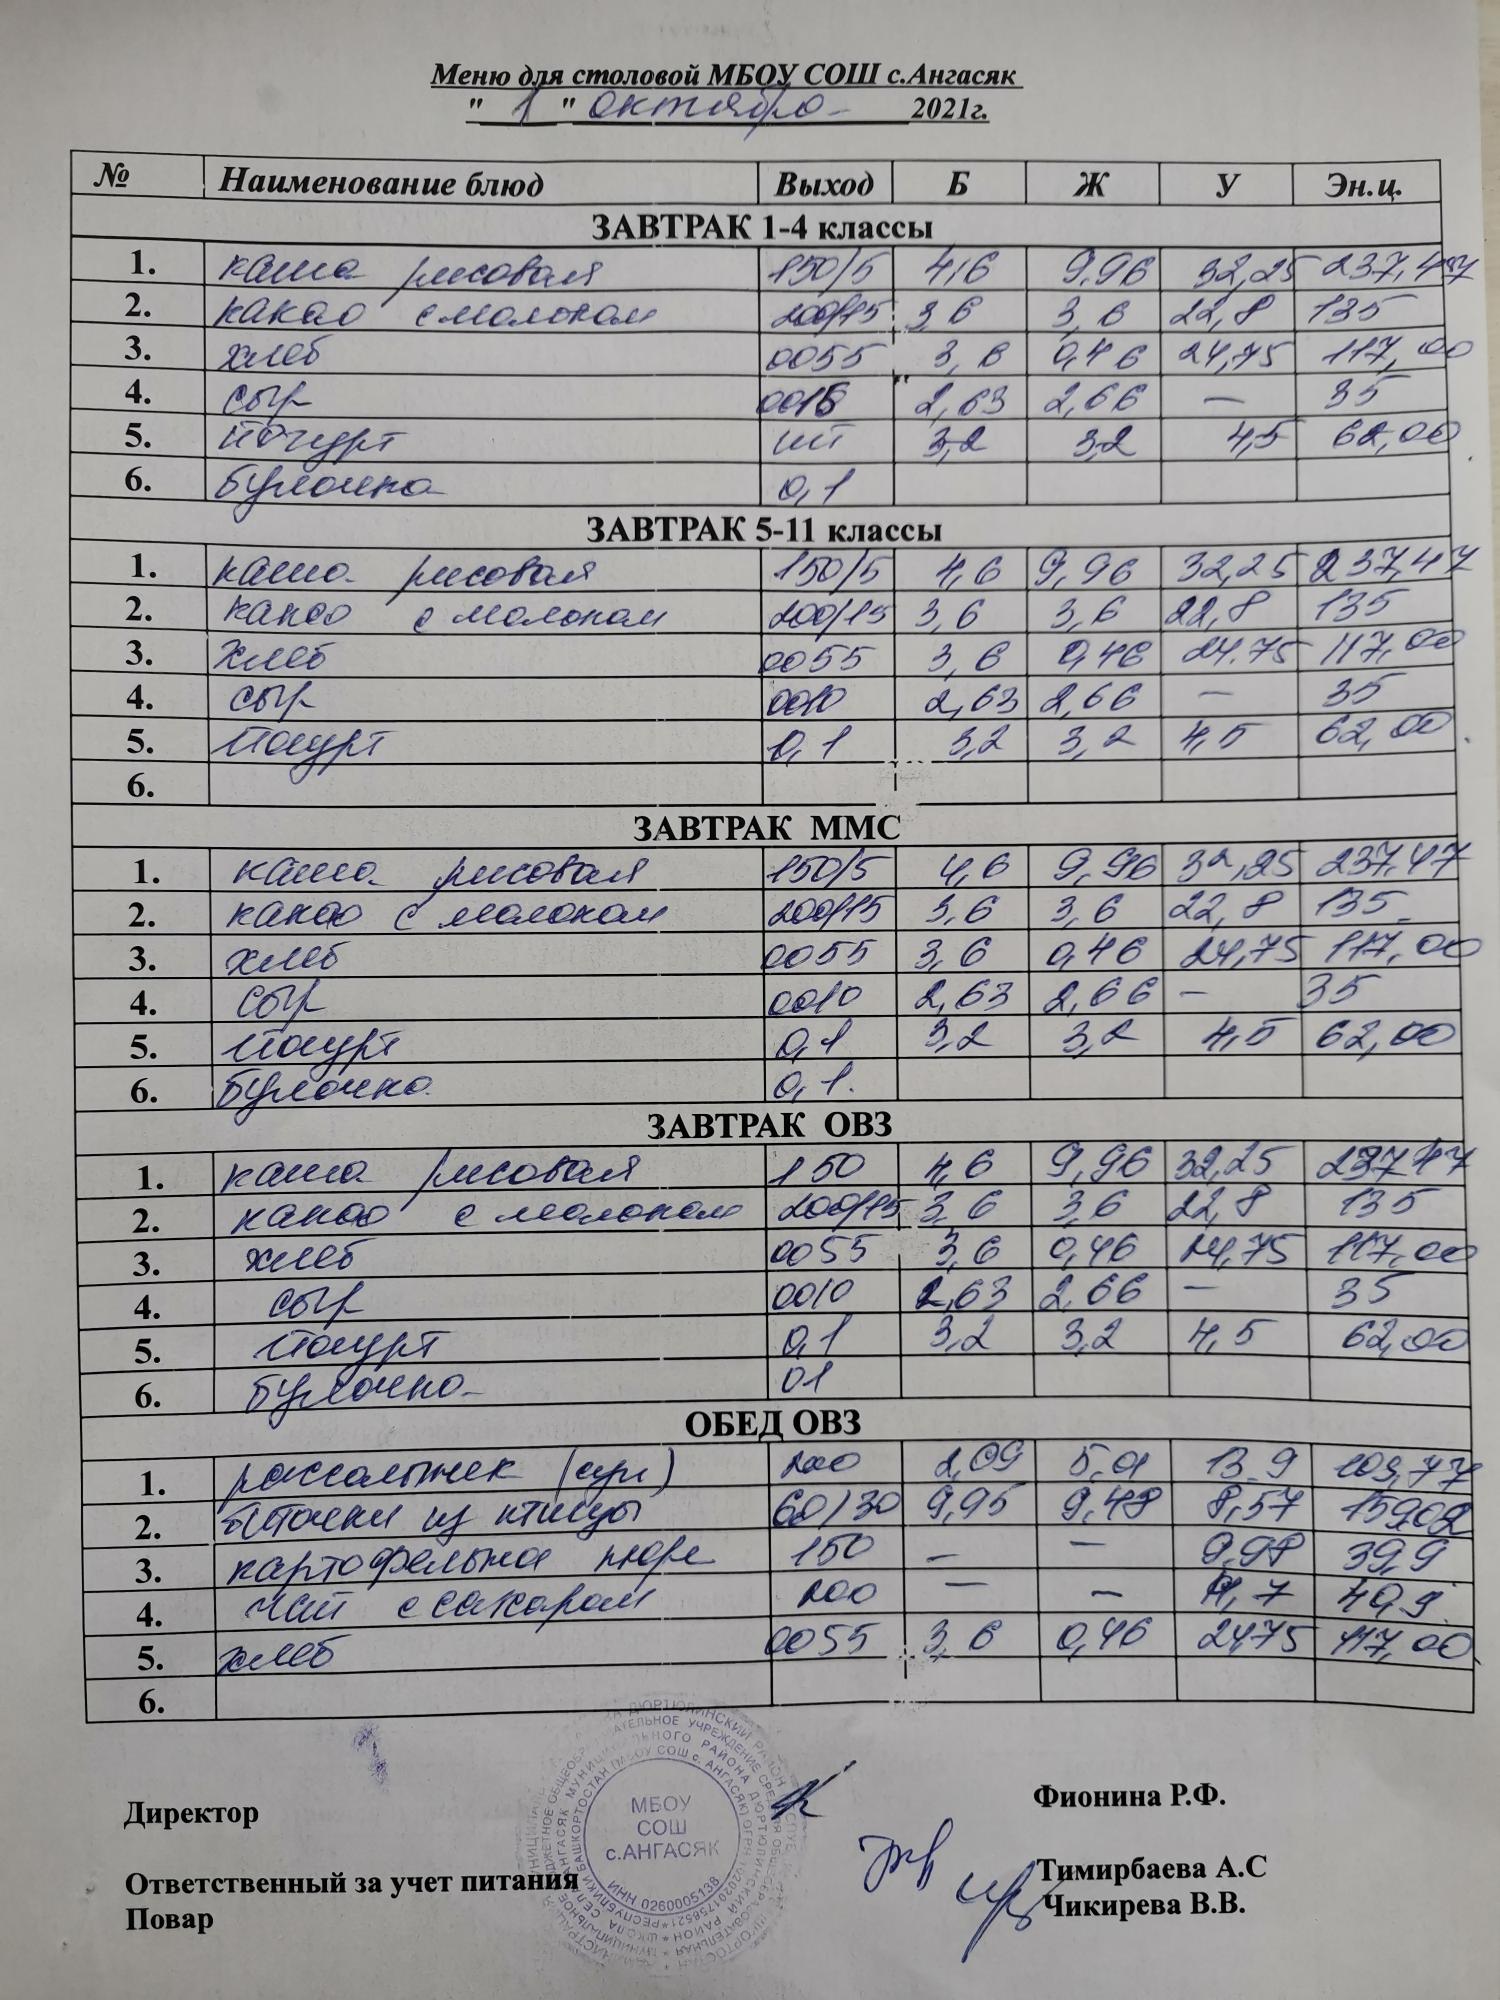 Меню для столовой МБОУ СОШ с.Ангасяк
" 1 " октября 2021г.
№ Наименование блюд Выход Б Ж У Эн.ц.
ЗАВТРАК 1-4 классы
1. каша рисовая 150/5 4,6 9,96 32,25 237,47
2. какао с молоком 200/15 3,6 3,6 22,8 135
3. хлеб 0055 3,6 0,46 24,75 117,00
4. сыр 2,63 2,66 — 35
5. йогурт шт 3,2 3,2 4,5 62,00
6. булочка 0,1
ЗАВТРАК 5-11 классы
1. каша рисовая 150/5 4,6 9,96 32,25 237,47
2. какао с молоком 200/15 3,6 3,6 22,8 135
3. хлеб 0055 3,6 0,46 24.75 117,00
4. сыр 0010 2,63 2,66 — 35
5. йогурт 0,1 3,2 3,2 4,5 62,00
6.
ЗАВТРАК ММС
1. каша рисовая 150/5 4,6 9,96 32,25 237,47
2. какао с молоком 200/15 3,6 3,6 22,8 135
3. хлеб 0055 3,6 0,46 24,75 117,00
4. сыр 0010 2,63 2,66 — 35
5. йогурт 0,1 3,2 3,2 4,5 62,00
6. булочка 0,1.
ЗАВТРАК ОВЗ
1. каша рисовая 150 4,6 9,96 32,25 237,47
2. какао с молоком 200/15 3,6 3,6 22,8 135
3. хлеб 0055 3,6 0,46 24,75 117,00
4. сыр 0010 2,63 2,66 — 35
5. йогурт 0,1 3,2 3,2 4,5 62,00
6. булочка 01
ОБЕД ОВЗ
1. рассольник (суп) 200 2,09 5,01 13.9 109,77
2. биточки из птицы 60/30 9,95 9,48 8,57 15902
3. картофельное пюре 150 — — 9,98 39,9
4. чай с сахаром 200 — — 49,9
5. хлеб 0055 3,6 0,46 24,75 117,00
6.
Директор Фионина Р.Ф.
МБОУ
СОШ
с.АНГАСЯК
ИНН 0260005138
Ответственный за учет питания Тимирбаева А.С
Повар Чикирева В.В.